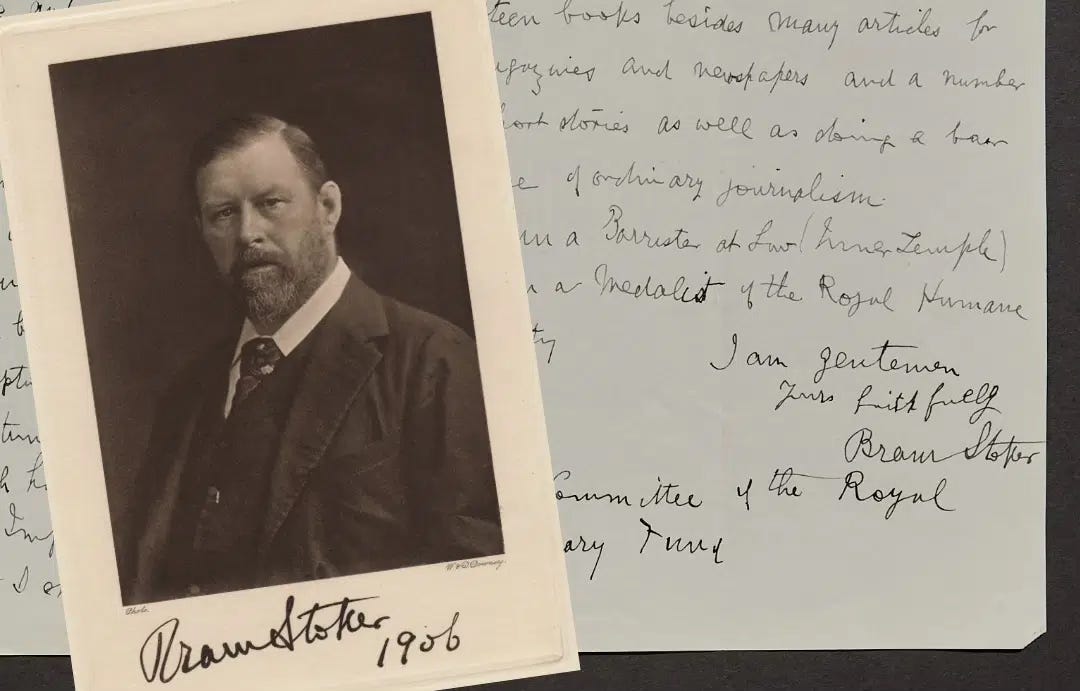 teen books besides many articles for
agazines and newspapers and a number
hort stories as well as doing a
e of ordinary journalism.
am a Barrister at Law (Inner Temple)
m a Medalist of the Royal Humane
ty
I am gentemen
Yours faithfully
Bram Stoker
Committee of the Royal
ary Fund
Photo. W & D Downey.
Bram Stoker
1906